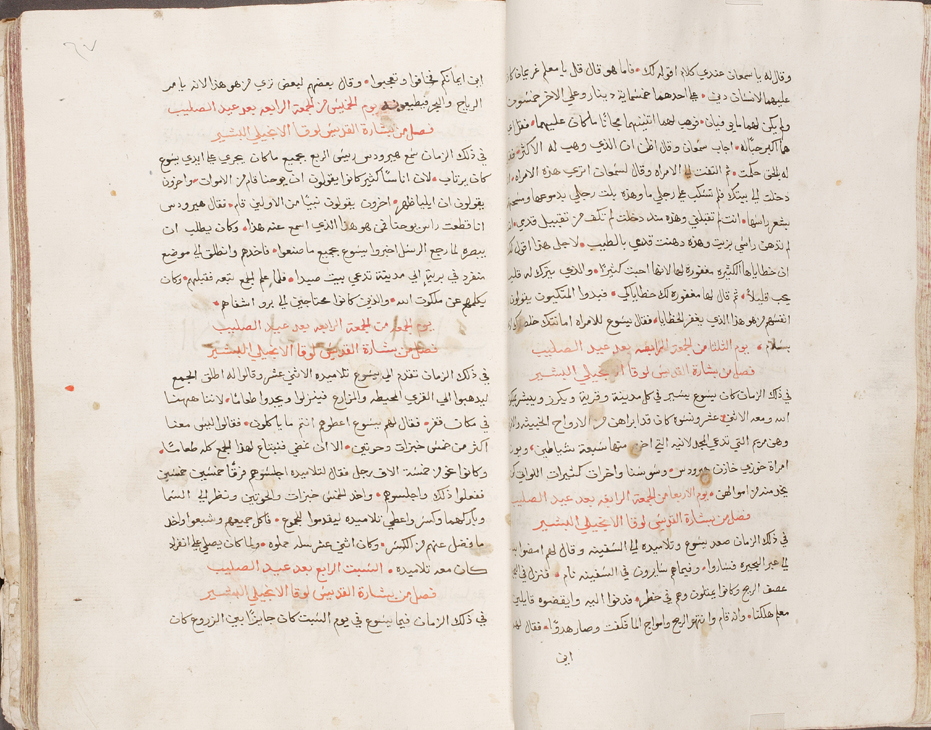 وقال له يا سمعان عندي كلام اقوله لك • فاما هو قال قل يا معلم غريمان كان
عليهما لانسان دين • علي احدهما خمسماية دينار وعلي الاخر خمسون
ولم يكن لهما ما يوفيان • فوهب لهما اثنينهما مجانًا ما كان عليهما • فقل لي
هما اكبر حبًا له • اجاب سمعان وقال اظن ان الذي وهب له الاكثر
له بالحق حكمت • ثم التفت الي الامراه وقال لسمعان اتري هذه الامراه
دخلت الي بيتك فلم تسكب علي رجلي ما وهذه بلت رجلي بدموعها ومسحت
بشعر راسها • انت لم تقبلني وهذه منذ دخلت لم تكف من تقبيل قدمي
لم تدهن راسي بزيت وهذه دهنت قدمي بالطيب • لاجل هذا اقول لك
ان خطاياها الكثيره مغفورة لها لانها احبت كثيرًا • والذي يترك له قليل
يحب قليلاً • ثم قال لها مغفورة لك خطاياكي • فبدوا المتكيون يقولون
انفسهم من هو هذا الذي يغفر الخطايا • فقال يسوع للامراه امانتك خلصتك
بسلام • يوم الثلثا من الجمعة الرابعه بعد عيد الصليب
فصل من بشارة القديس لوقا الانجيلي البشير
في ذلك الزمان كان يسوع يسير في كل مدينة وقرية ويكرز ويبشر
الله ومعه الاثني عشر ونسوة كان قد ابراهن من الارواح الخبيثه
وهن مريم التي تدعي المجدلانيه التي اخرج منها سبعة شياطين •
امراة خوزي خازن هيرودس • وسوسنا واخرات كثيرات اللواتي
يخدمنه من اموالهن • يوم الاربعا من الجمعة الرابعه بعد عيد الصليب
فصل من بشارة القديس لوقا الانجيلي البشير
في ذلك الزمان صعد يسوع وتلاميذه الي السفينه وقال لهم امضوا بنا
الي عبر البحيره فساروا • وفيما هم سايرون في السفينه نام • فنزل في
عصف الريح وكانوا يمتلون وهم في خطر • فدنوا اليه وايقضوه قايلين
معلم هلكنا • وانه قام وانتهر الريح وامواج الما فكفت وصار هدوًا • فقال لهم
اين
اين ايمانكم فخافوا وتعجبوا • وقال بعضهم لبعض تري من هو هذا لانه يامر
الرياح والبحر فيطيعونه يوم الخميس من الجمعة الرابعه بعد عيد الصليب
فصل من بشارة القديس لوقا الانجيلي البشير
في ذلك الزمان سمع هيرودس رييس الربع بجميع ما كان يجري علي ايدي يسوع
كان يرتاب • لان اناسًا كثير كانوا يقولون ان يوحنا قام من الاموات • واخرون
يقولون ان ايليا ظهر • اخرون يقولون نبيًا من الاولين قام • فقال هيرودس
انا قطعت راس يوحنا فمن هو هذا الذي اسمع عنه هذا • وكان يطلب ان
يبصره لما رجع الرسل اخبروا يسوع بجميع ما صنعوا • فاخذهم وانطلق الي موضع
منفرد في بريه الي مدينة تدعي بيت صيدا • فلما علم الجمع تبعه فقبلهم • وكان
يكلمهم عن ملكوت الله • والذين كانوا محتاجين الي برو اشفاهم •
يوم الجمعه من الجمعة الرابعه بعد عيد الصليب
فصل من بشارة القديس لوقا الانجيلي البشير
في ذلك الزمان تقدم الي يسوع تلاميذه الاثني عشر وقالوا له اطلق الجمع
ليذهبوا الي القري المحيطه والمزارع فينزلوا ويجدوا طعامًا • لاننا ههنا
في مكان قفر • فقال لهم يسوع اعطوهم انتم ما ياكلون • فقالوا ليس معنا
اكثر من خمس خبزات وحوتين • الا ان نمضي فنبتاع لهذا الجمع كله طعامًا •
وكانوا نحو من خمسة الاف رجل فقال لتلاميذه اجلسوهم فرقًا خمسين خمسين
ففعلوا ذلك واجلسوهم • واخذ الخمس خبزات والحوتين ونظر الي السما
وباركهما وكسر واعطي تلاميذه ليقدموا للجموع • فاكل جميعهم وشبعوا واخذ
ما فضل عنهم من الكسر • وكان اثني عشر سله مملوه • ولما كان يصلي علي انفراد
كان معه تلاميذه • السبت الرابع بعد عيد الصليب
فصل من بشارة القديس لوقا الانجيلي البشير
في ذلك الزمان فيما يسوع في يوم السبت كان جايزًا بين الزروع كان